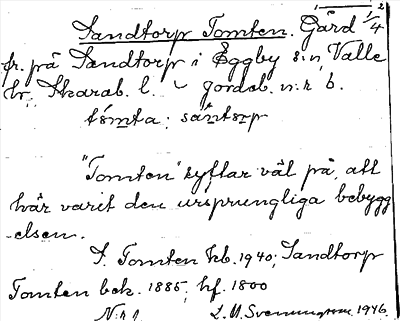 Sandtorp Tomten. Gård 1/4 2
fr. på Sandtorp i Eggby s:n, Valle
hr, Skarab. l. – jordeb. n:r 6.
tómta: sántorp
"Tomten" syftar väl på, att
här varit den ursprungliga bebygg
-elsen.
S. Tomten kb. 1940; Sandtorp
Tomten bek. 1885; hf. 1800
L. M. Svenungsson 1946